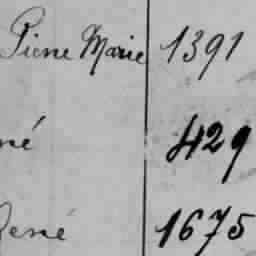 Pierre Marie 1391
né 429
René 1675